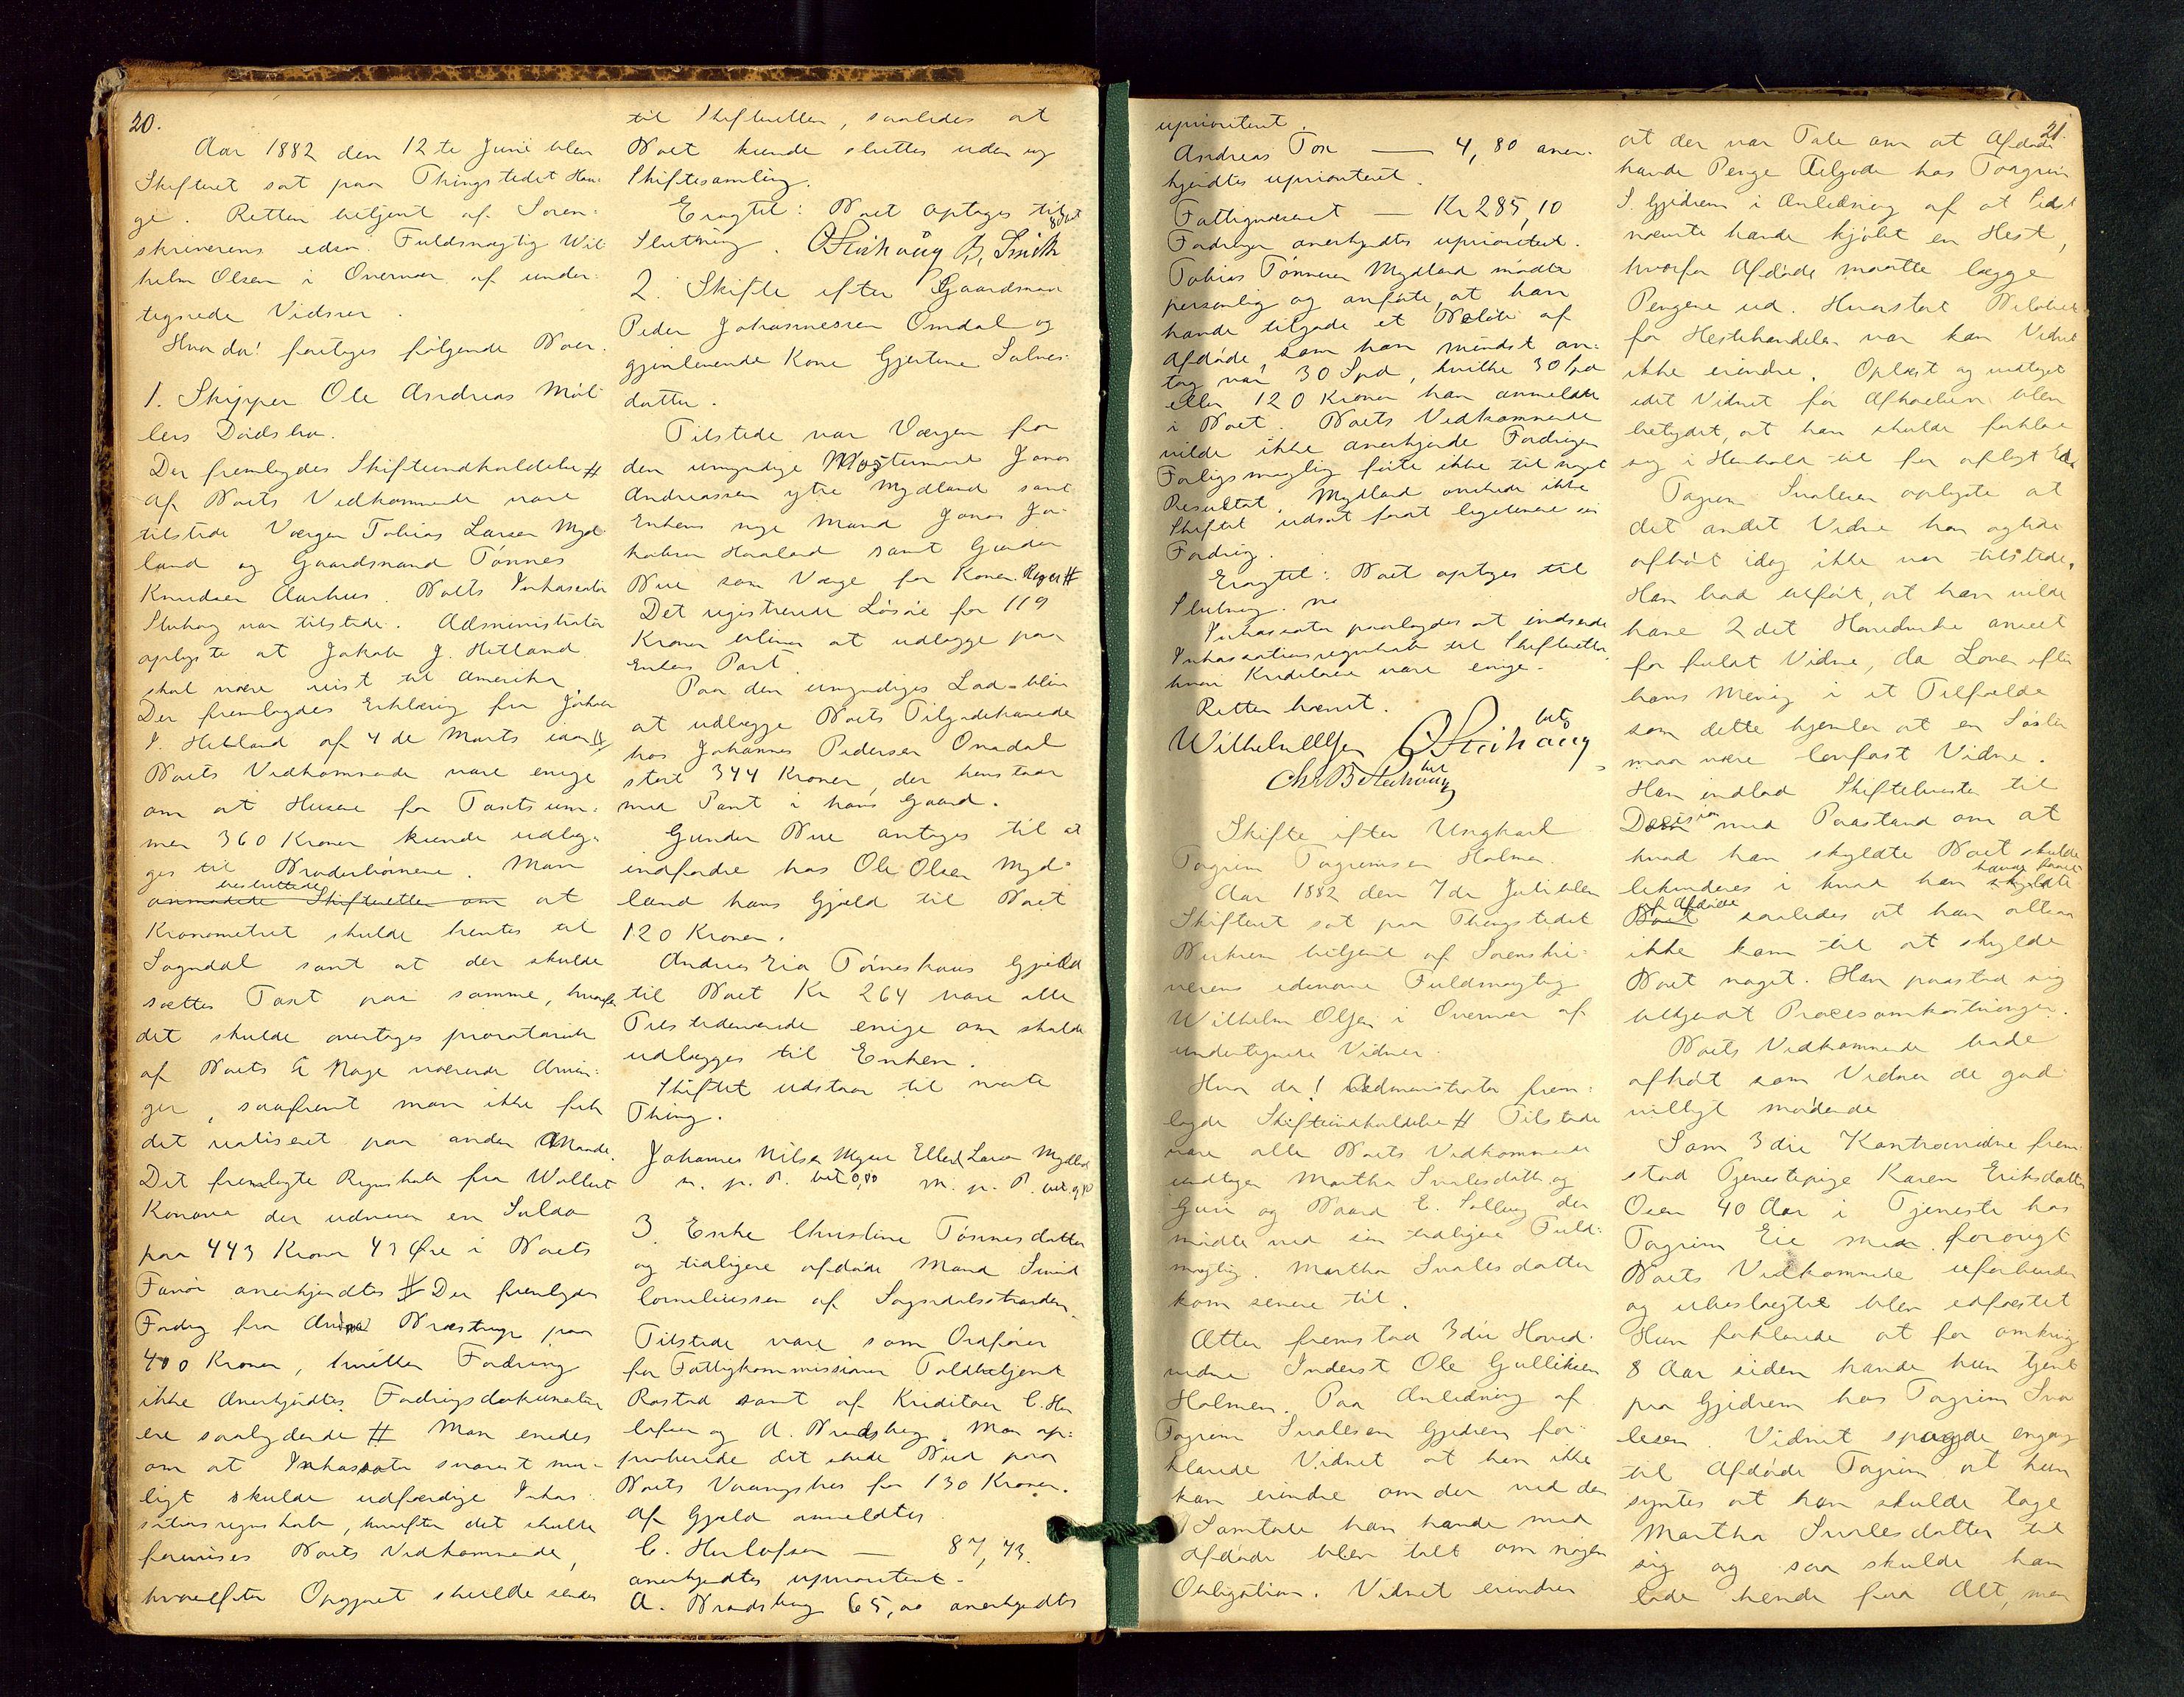 20.
Aar 1882 den 12te Juni blev
Skifteret sat paa Thingstedet Hau-
ge. Retten betjent af Soren-
skriverens edsv. Fuldmægtig Wil-
helm Olsen i Overvær af under-
tegnede Vidner.
Hvor da! foretages følgende Boer.
1. Skipper Ole Andreas Møl-
lers Dødsbo.
Der fremlagdes Skifteindkaldelse #
Af Boets Vedkommende vare
tilstede Værgen Tobias Larsen Myd-
land og Gaardmand Tønnes
Knudsen Aarhus. Boets Inkassator
Stuhaug var tilstede. Administrator
oplyste at Jakob J. Hetland
skal være reist til Amerika
Der fremlagdes Erklæring fra Jakob
J. Hetland af 4de Marts iaar #
Boets Vedkommende vare enige
om at Husene for Taxtsum-
men 360 Kroner kunde udlæg-
ges til Broderbørnene. Man
besluttede
anmodede Skifteretten om at
Kronometret skulde hentes til
Sogndal samt at der skulde
sættes Taxt paa samme, hvorefter
det skulde overtages proratarisk
af Boets á Rage værende Arvin-
ger, saafremt man ikke fik
det realiseret paa anden Maade.
Det fremlagte Regnskab fra Wallert
Konow der udviser en Saldo
paa 443 Kroner 43 Øre i Boets
Favør anerkjendtes # Der fremlagdes
Fordrg fra Anna Bræstrup paa
400 Kroner, hvilken Fordring
ikke Anerkjendtes. Fordringsdokumenterne
ere saalydende # Man enedes
om at Inkassator snarest mu-
ligt skulde udfærdige Inkas-
sationsregnskab, hvorefter det skulde
forevises Boets Vedkommende,
hvorefter Opgjøret skulde sendes
til Skifteretten, saaledes at
Boet kunde sluttes uden ny
Skiftesamling.
Eragtet: Boet optages til
Slutning. O Stuhaug B. Smith
2. Skifte efter Gaardmand
Peder Johannessen Omdal og
gjenlevende Kone Gjertine Salves-
datter.
Tilstede var Værgen for
den umyndige Mostermand Jonas
Andreassen ytre Mydland samt
Enkens nye Mand Jonas Ja-
kobsen Haaland samt Gunder
Bue som Værge for Konen. Reger #
Det registrerede Løsøre for 119
Kroner bliver at udlægge paa
Enkens Part.
Paa den umyndiges Lod bliver
at udlægge Boets Tilgodehavende
hos Johannes Pedersen Omdal
stort 344 Kroner, der henstaar
med Pant i hans Gaard.
Gunder Bue antages til at
indfordre hos Ole Olsen Myd-
land hans Gjæld til Boet
120 Kroner.
Andreas Eia Tørneshaus Gjæld
til Boet Kr 264 vare alle
Tilstedeværende enige om skulde
udlægges til Enken.
Skiftet udstaar til næste
Thing.
Johannes Nilsen Mysse Ellert Larsen Mydland
m. p. P. bet 0,80 m. p. P. bet 0,80
3. Enke Christine Tønnesdatter
og tidligere afdøde Mand Smid
Corneliussen af Sogndalsstranden.
Tilstede vare som Ordfører
for Fattigkommissionen Toldbetjent
Rostad samt af Kreditorer C. Her-
lofsen og A. Brandsberg. Man ap-
proberede det skede Bud paa
Boets Vaaningshus for 130 Kroner.
Af Gjæld anmeldtes
C. Herlofsen — 87,43.
anerkjendtes uprioritert.
A. Brandsberg 65,00 anerkjendtes
uprioritert.
Andreas Tox — 4,80 aner-
kjendtes uprioritert.
Fattigvæsenet — Kr 285,10
Fordringen anerkjendtes uprioritert.
Tobias Tønnesen Mydland mødte
personlig og anførte, at han
havde tilgode et Beløb af
Afdøde, som han mindst an-
tog var 30 Spd, hvilke 30 Spd
eller 120 Kroner han anmeldte
i Boet. Boets Vedkommende
vilde ikke anerkjende Fordringen
Forligsmægling førte ikke til noget
Resultat. Mydland ønskede ikke
Skiftet udsat forat legitimere sin
Fordring.
Eragtet: Boet optages til
Slutning.
Inkassator paalagdes at indsende
Inkassationsregnskab til Skifteretten
hvori Kreditorerne vare enige.
Retten hævet.
Wilhelm Olsen O Stuhaug
Chr B Stuhaug
Skifte efter Ungkarl
Torgrim Torgrimsen Holmen.
Aar 1882 den 7de Juli blev
Skifteret sat paa Thingstedet
Birkrem betjent af Sorenskri-
verens edsvorne Fuldmægtig
Wilhelm Olsen i Overvær af
undertegnede Vidner.
Hvor da! Administrator frem-
lagde Skifteindkaldelse # Tilstede
vare alle Boets Vedkommende
undtagen Martha Svalesdatter og
Guri og Baard E. Solberg der
mødte ved sin tidligere Fuld-
mægtig. Martha Svalesdatter
kom senere til.
Atter fremstod 3die Hoved-
vidne Inderst Ole Gulliksen
Holmen. Paa Anledning af
Torgrim Svalesen Gjedrem for-
klarede Vidnet at han ikke
kan erindre om der ved den
Samtale han havde med
Afdøde blev talt om nogen
Obligation. Vidnet erindrer
21.
at der var Tale om at Afdøde
havde Penge tilgode hos Torgrim
S. Gjedrem i Anledning af at sidst-
nævnte havde kjøbt en Hest,
hvorfor Afdøde maatte lægge
Pengene ud. Hvorstort Beløbet
for Hestehandelen var kan Vidnet
ikke erindre. Oplæst og vedtaget
idet Vidnet før Afhørelsen blev
betydet, at han skulde forklare
sig i Henhold til før aflagt Ed.
Torgrim Svalesen oplyste at
det andet Vidne han agtede
afhørt idag ikke var tilstede.
Han bad tilført, at han vilde
have 2det Hovedvidne anseet
for fuldt Vidne, da Loven efter
hans Mening i et Tilfælde
som dette hjemler at en Søster
maa være lovfast Vidne.
Han indlod Skiftetvisten til
Decision med Paastand om at
hvad han skyldte Boet skulde
likvideres i hvad han havde faaet
af Afdøde
Boet saaledes at han altsaa
ikke kom til at skylde
Boet noget. Han paastod sig
tilkjendt Procesomkostninger.
Boets Vedkommende bade
afhørt som Vidner de god-
villigt mødende
Som 3die Kontravidne frem-
stod Tjenestepige Karen Eriksdatter
Oven 40 Aar i Tjeneste hos
Torgrim Eie med forøvrigt
Boets Vedkommende uforbunden
og ubeslægtet blev edfæstet
Hun forklarede at for omkring
8 Aar siden havde hun tjent
paa Gjedrem hos Torgrim Sva-
lesen. Vidnet spøgede engang
til Afdøde Torgrim at hun
syntes at han skulde tage
Martha Svalesdatter til
sig og saa skulde han
lade hende faa Alt, men